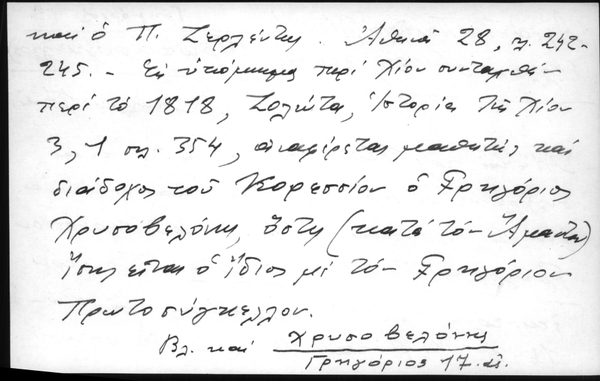 καὶ ὁ Π. Ζερλέντης. Ἀθηνᾶ 28, σελ. 242-
245. - Εἰς ὑπόμνημα περὶ Χίου συνταχθὲν
περὶ τὸ 1818, Σολώτα, Ἱστορία τῆς Χίου
3, 1 σελ. 354, ἀναφέρεται μαθητὴς καὶ
διάδοχος τοῦ Κορεσσίου ὁ Γρηγόριος
Χρυσοβελόνης, ὅστις (κατὰ τὸν Ἄμαντον)
ἴσως εἶναι ὁ ἴδιος μὲ τὸν Γρηγόριον
Πρωτοσύγκελλον.
Βλ. καὶ Χρυσοβελόνης
Γρηγόριος 17. αἰ.